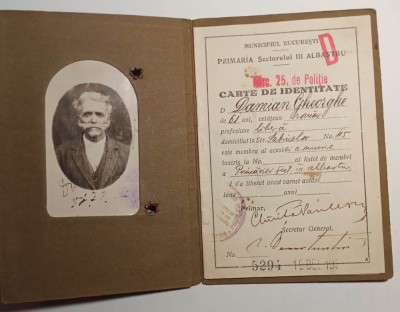 MUNICIPIUL BUCUREȘTI
PRIMARIA Sectorului III ALBASTRU
D
Circ. 25. de Poliție
CARTE DE IDENTITATE
D Damian Gheorghe
de 61 ani, cetățean român
profesiune liberă
domiciliat în Str. No. 115
este membru al acestei
înscris la No. al listei de membri
a Primăriei Sect. III albastru
I s'a liberat acest carnet astăzi
luna anul
Primar,
Secretar General,
No. 5294 15 DEC 193